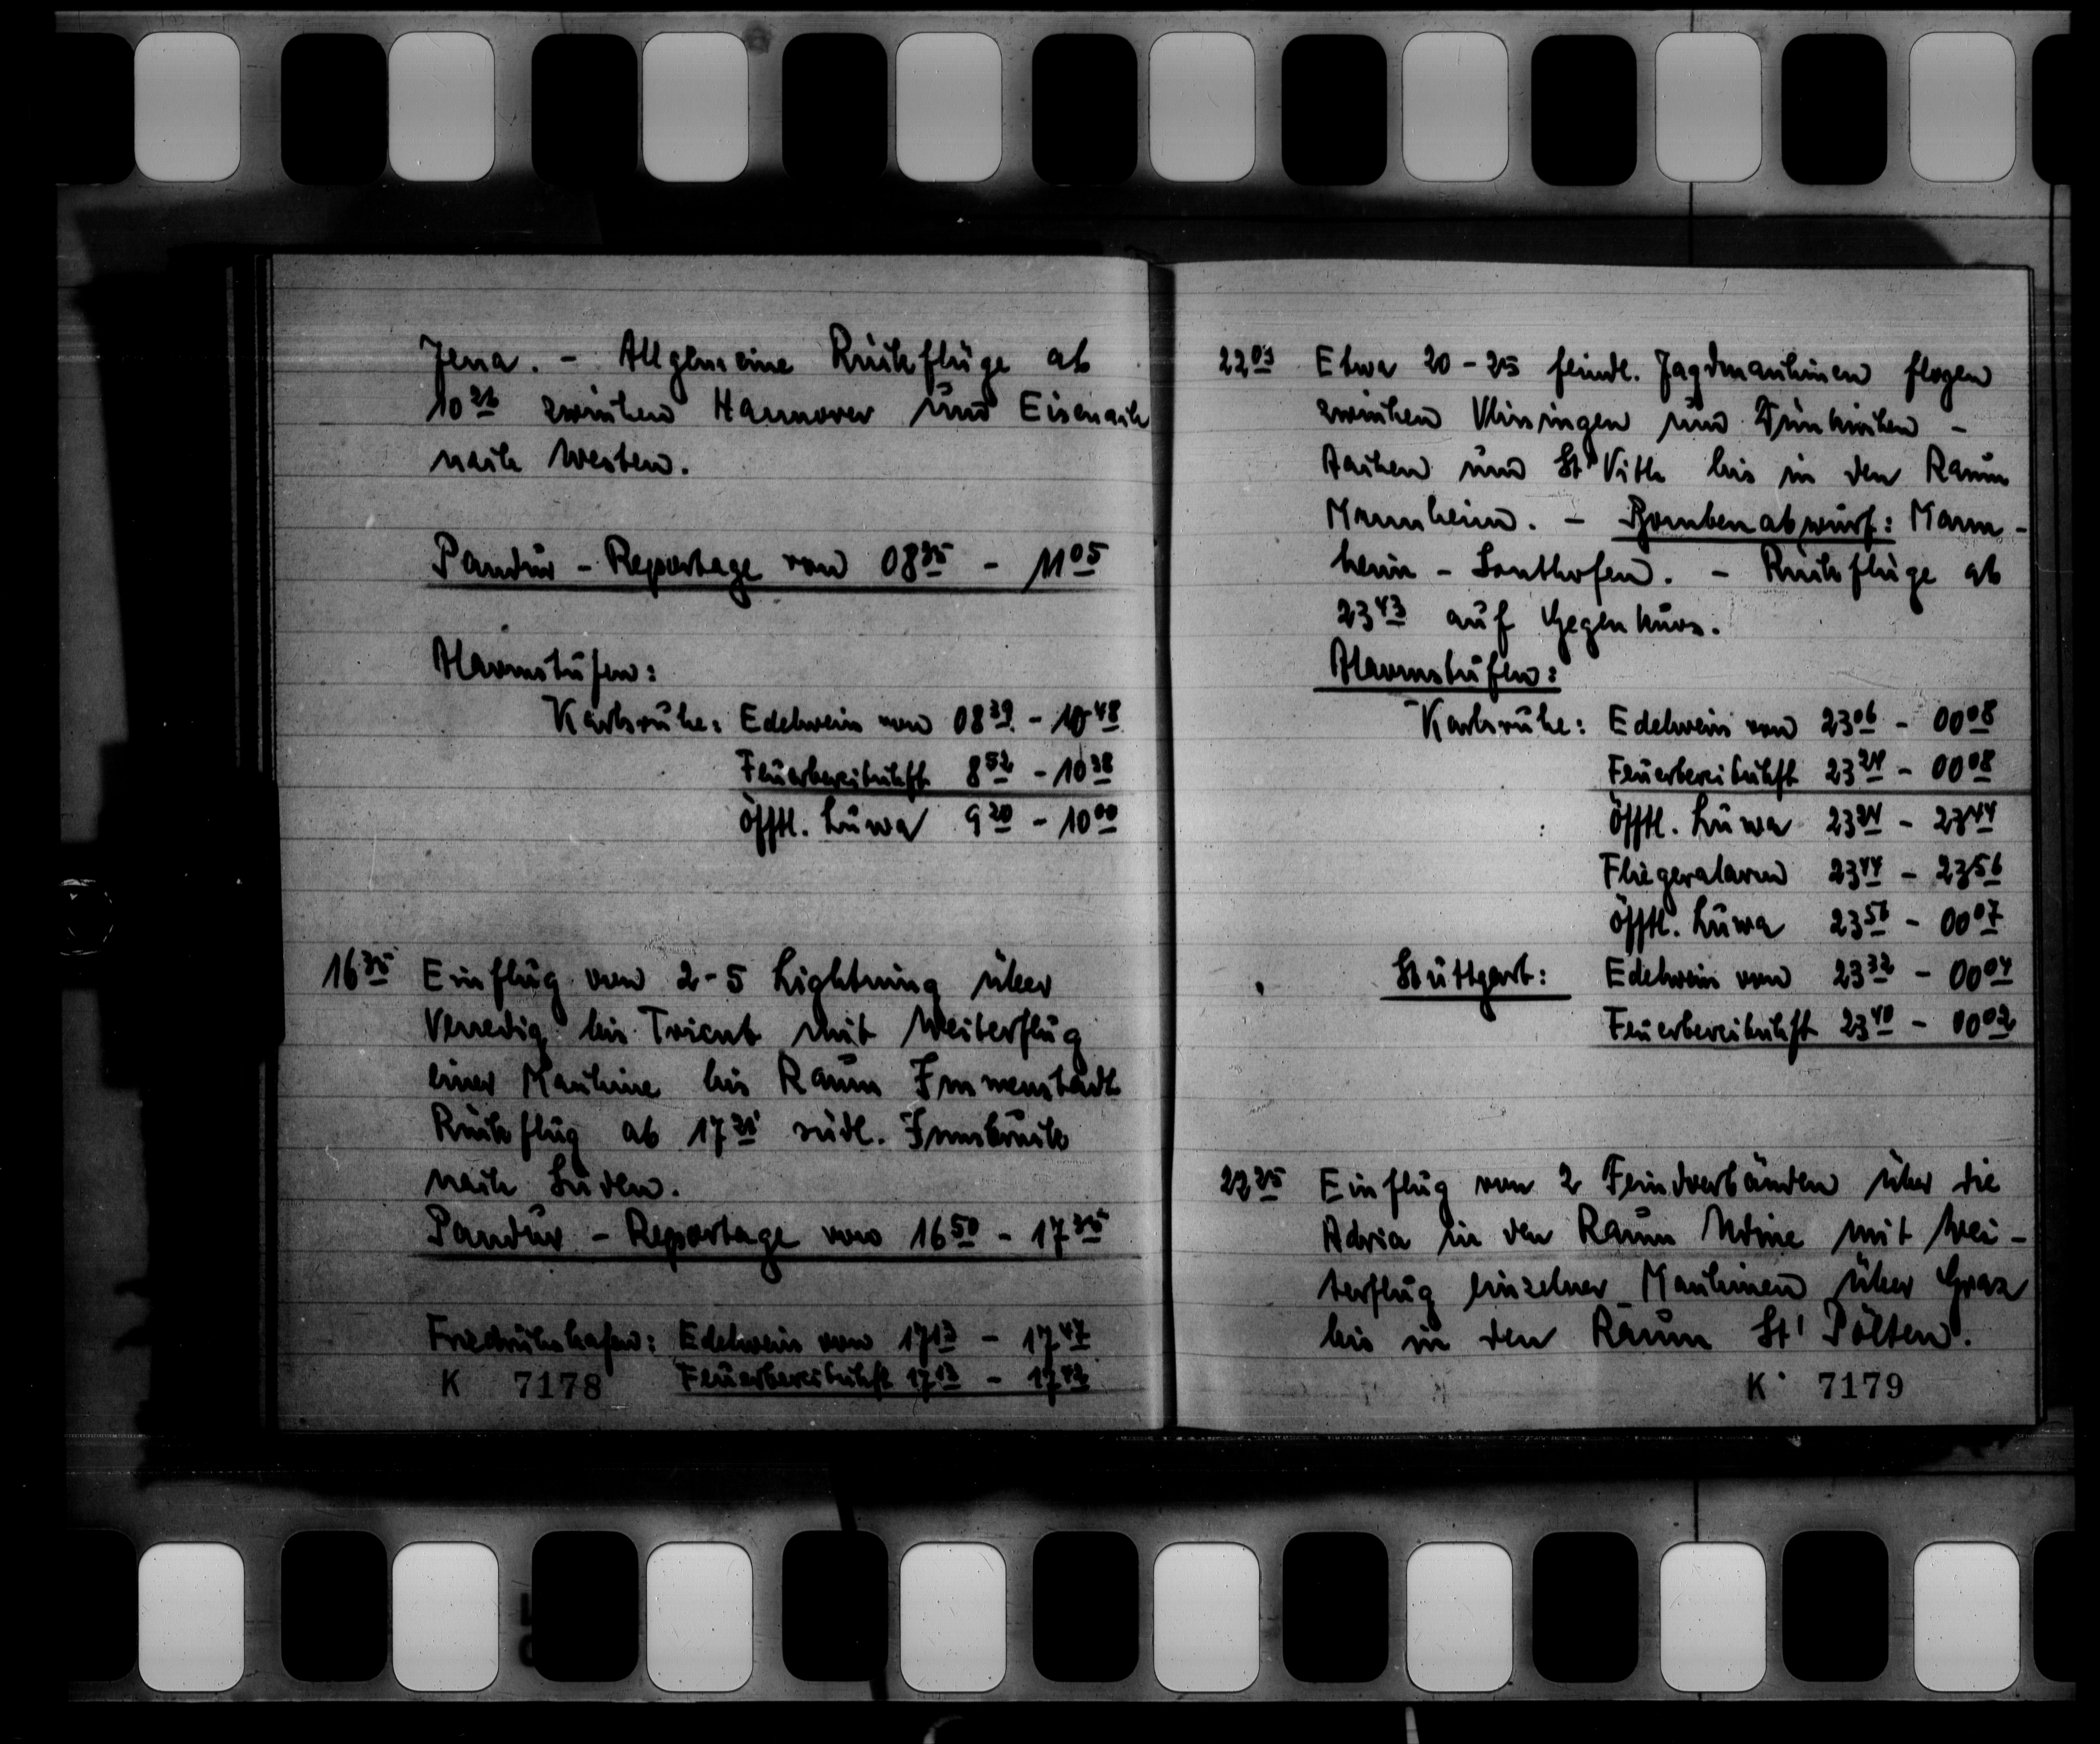 Jena. - Allgemeine Rückflüge ab
10²⁶ zwischen Hannover und Eisenach
nach Westen.
Pandur - Reportage von 08³⁵ - 11⁰⁵
Alarmstufen:
Karlsruhe: Edelweis von 08³⁹ - 10⁴⁸
Feuerbereitschft 8⁵² - 10³⁸
öfftl. Luwa 9²⁰ - 10⁰⁰
16³⁵ Einflug von 2-5 Lightning über
Venedig bis Trient mit Weiterflug
einer Maschine bis Raum Immenstadt
Rückflug ab 17²⁵ südl. Innsbruck
nach Süden.
Pandur - Reportage von 16⁵⁰ - 17³⁵
Friedrichshafen: Edelweis von 17¹³ - 17⁴⁷
Feuerbereitschft 17¹³ - 17⁴²
K 7178
22⁰³ Etwa 20-25 feindl. Jagdmaschinen flogen
zwischen Vlissingen und Dünkirchen -
Aachen und St' Vith bis in den Raum
Mannheim. - Bombenabwurf: Mann-
heim - Sonthofen. - Rückflüge ab
23⁴³ auf Gegenkurs.
Alarmstufen:
Karlsruhe: Edelweis von 23⁰⁶ - 00⁰⁸
Feuerbereitschft 23²⁴ - 00⁰⁸
öfftl. Luwa 23²⁴ - 23⁴⁴
Fliegeralarm 23⁴⁴ - 23⁵⁶
öfftl. Luwa 23⁵⁶ - 00⁰⁷
Stuttgart: Edelweis von 23³² - 00⁰⁴
Feuerbereitschft 23⁴⁰ - 00⁰²
22²⁵ Einflug von 2 Feindverbänden über die
Adria in den Raum Udine mit Wei-
terflug einzelner Maschinen über Graz
bis in den Raum St' Pölten.
K 7179